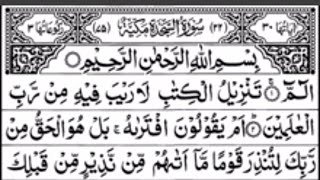 اٰيَاتُهَا ٣٠ (٣٢) سُوْرَةُ السَّجْدَةِ مَكِّيَّةٌ (٧٥) رُكُوْعَاتُهَا ٣
بِسْمِ اللّٰهِ الرَّحْمٰنِ الرَّحِيْمِ
الٓمّٓ تَنْزِيْلُ الْكِتٰبِ لَا رَيْبَ فِيْهِ مِنْ رَّبِّ
الْعٰلَمِيْنَ اَمْ يَقُوْلُوْنَ افْتَرٰىهُ ۚ بَلْ هُوَ الْحَقُّ مِنْ
رَّبِّكَ لِتُنْذِرَ قَوْمًا مَّاۤ اَتٰىهُمْ مِّنْ نَّذِيْرٍ مِّنْ قَبْلِكَ